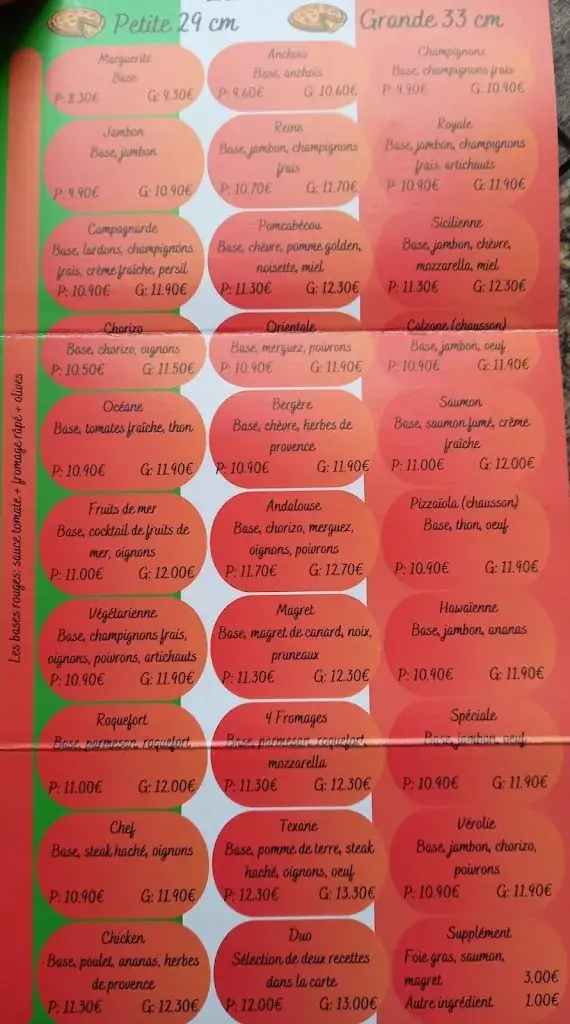 Petite 29 cm
Grande 33 cm
Marguerite
Base
P: 8.30€ G: 9.30€
Anchois
Base, anchois
P: 9.60€ G: 10.60€
Champignons
Base, champignons frais
P: 9.90€ G: 10.90€
Jambon
Base, jambon
P: 9.90€ G: 10.90€
Reine
Base, jambon, champignons
frais
P: 10.70€ G: 11.70€
Royale
Base, jambon, champignons
frais, artichauts
P: 10.90€ G: 11.90€
Campagnarde
Base, lardons, champignons
frais, crème fraîche, persil
P: 10.90€ G: 11.90€
Pomcabécou
Base, chèvre, pomme golden,
noisette, miel
P: 11.30€ G: 12.30€
Sicilienne
Base, jambon, chèvre,
mozzarella, miel
P: 11.30€ G: 12.30€
Chorizo
Base, chorizo, oignons
P: 10.50€ G: 11.50€
Orientale
Base, merguez, poivrons
P: 10.90€ G: 11.90€
Calzone (chausson)
Base, jambon, oeuf
P: 10.90€ G: 11.90€
Océane
Base, tomates fraîche, thon
P: 10.90€ G: 11.90€
Bergère
Base, chèvre, herbes de
provence
P: 10.90€ G: 11.90€
Saumon
Base, saumon fumé, crème
fraîche
P: 11.00€ G: 12.00€
Fruits de mer
Base, cocktail de fruits de
mer, oignons
P: 11.00€ G: 12.00€
Andalouse
Base, chorizo, merguez,
oignons, poivrons
P: 11.70€ G: 12.70€
Pizzaïola (chausson)
Base, thon, oeuf
P: 10.90€ G: 11.90€
Végétarienne
Base, champignons frais,
oignons, poivrons, artichauts
P: 10.90€ G: 11.90€
Magret
Base, magret de canard, noix,
pruneaux
P: 11.30€ G: 12.30€
Hawaïenne
Base, jambon, ananas
P: 10.90€ G: 11.90€
Roquefort
Base, parmesan, roquefort
P: 11.00€ G: 12.00€
4 Fromages
Base, parmesan, roquefort,
mozzarella
P: 11.30€ G: 12.30€
Spéciale
Base, jambon, oeuf
P: 10.90€ G: 11.90€
Chef
Base, steak haché, oignons
P: 10.90€ G: 11.90€
Texane
Base, pomme de terre, steak
haché, oignons, oeuf
P: 12.30€ G: 13.30€
Vérolie
Base, jambon, chorizo,
poivrons
P: 10.90€ G: 11.90€
Chicken
Base, poulet, ananas, herbes
de provence
P: 11.30€ G: 12.30€
Duo
Sélection de deux recettes
dans la carte
P: 12.00€ G: 13.00€
Supplément
Foie gras, saumon,
magret 3.00€
Autre ingrédient 1.00€
Les bases rouges: sauce tomate + fromage râpé + olives